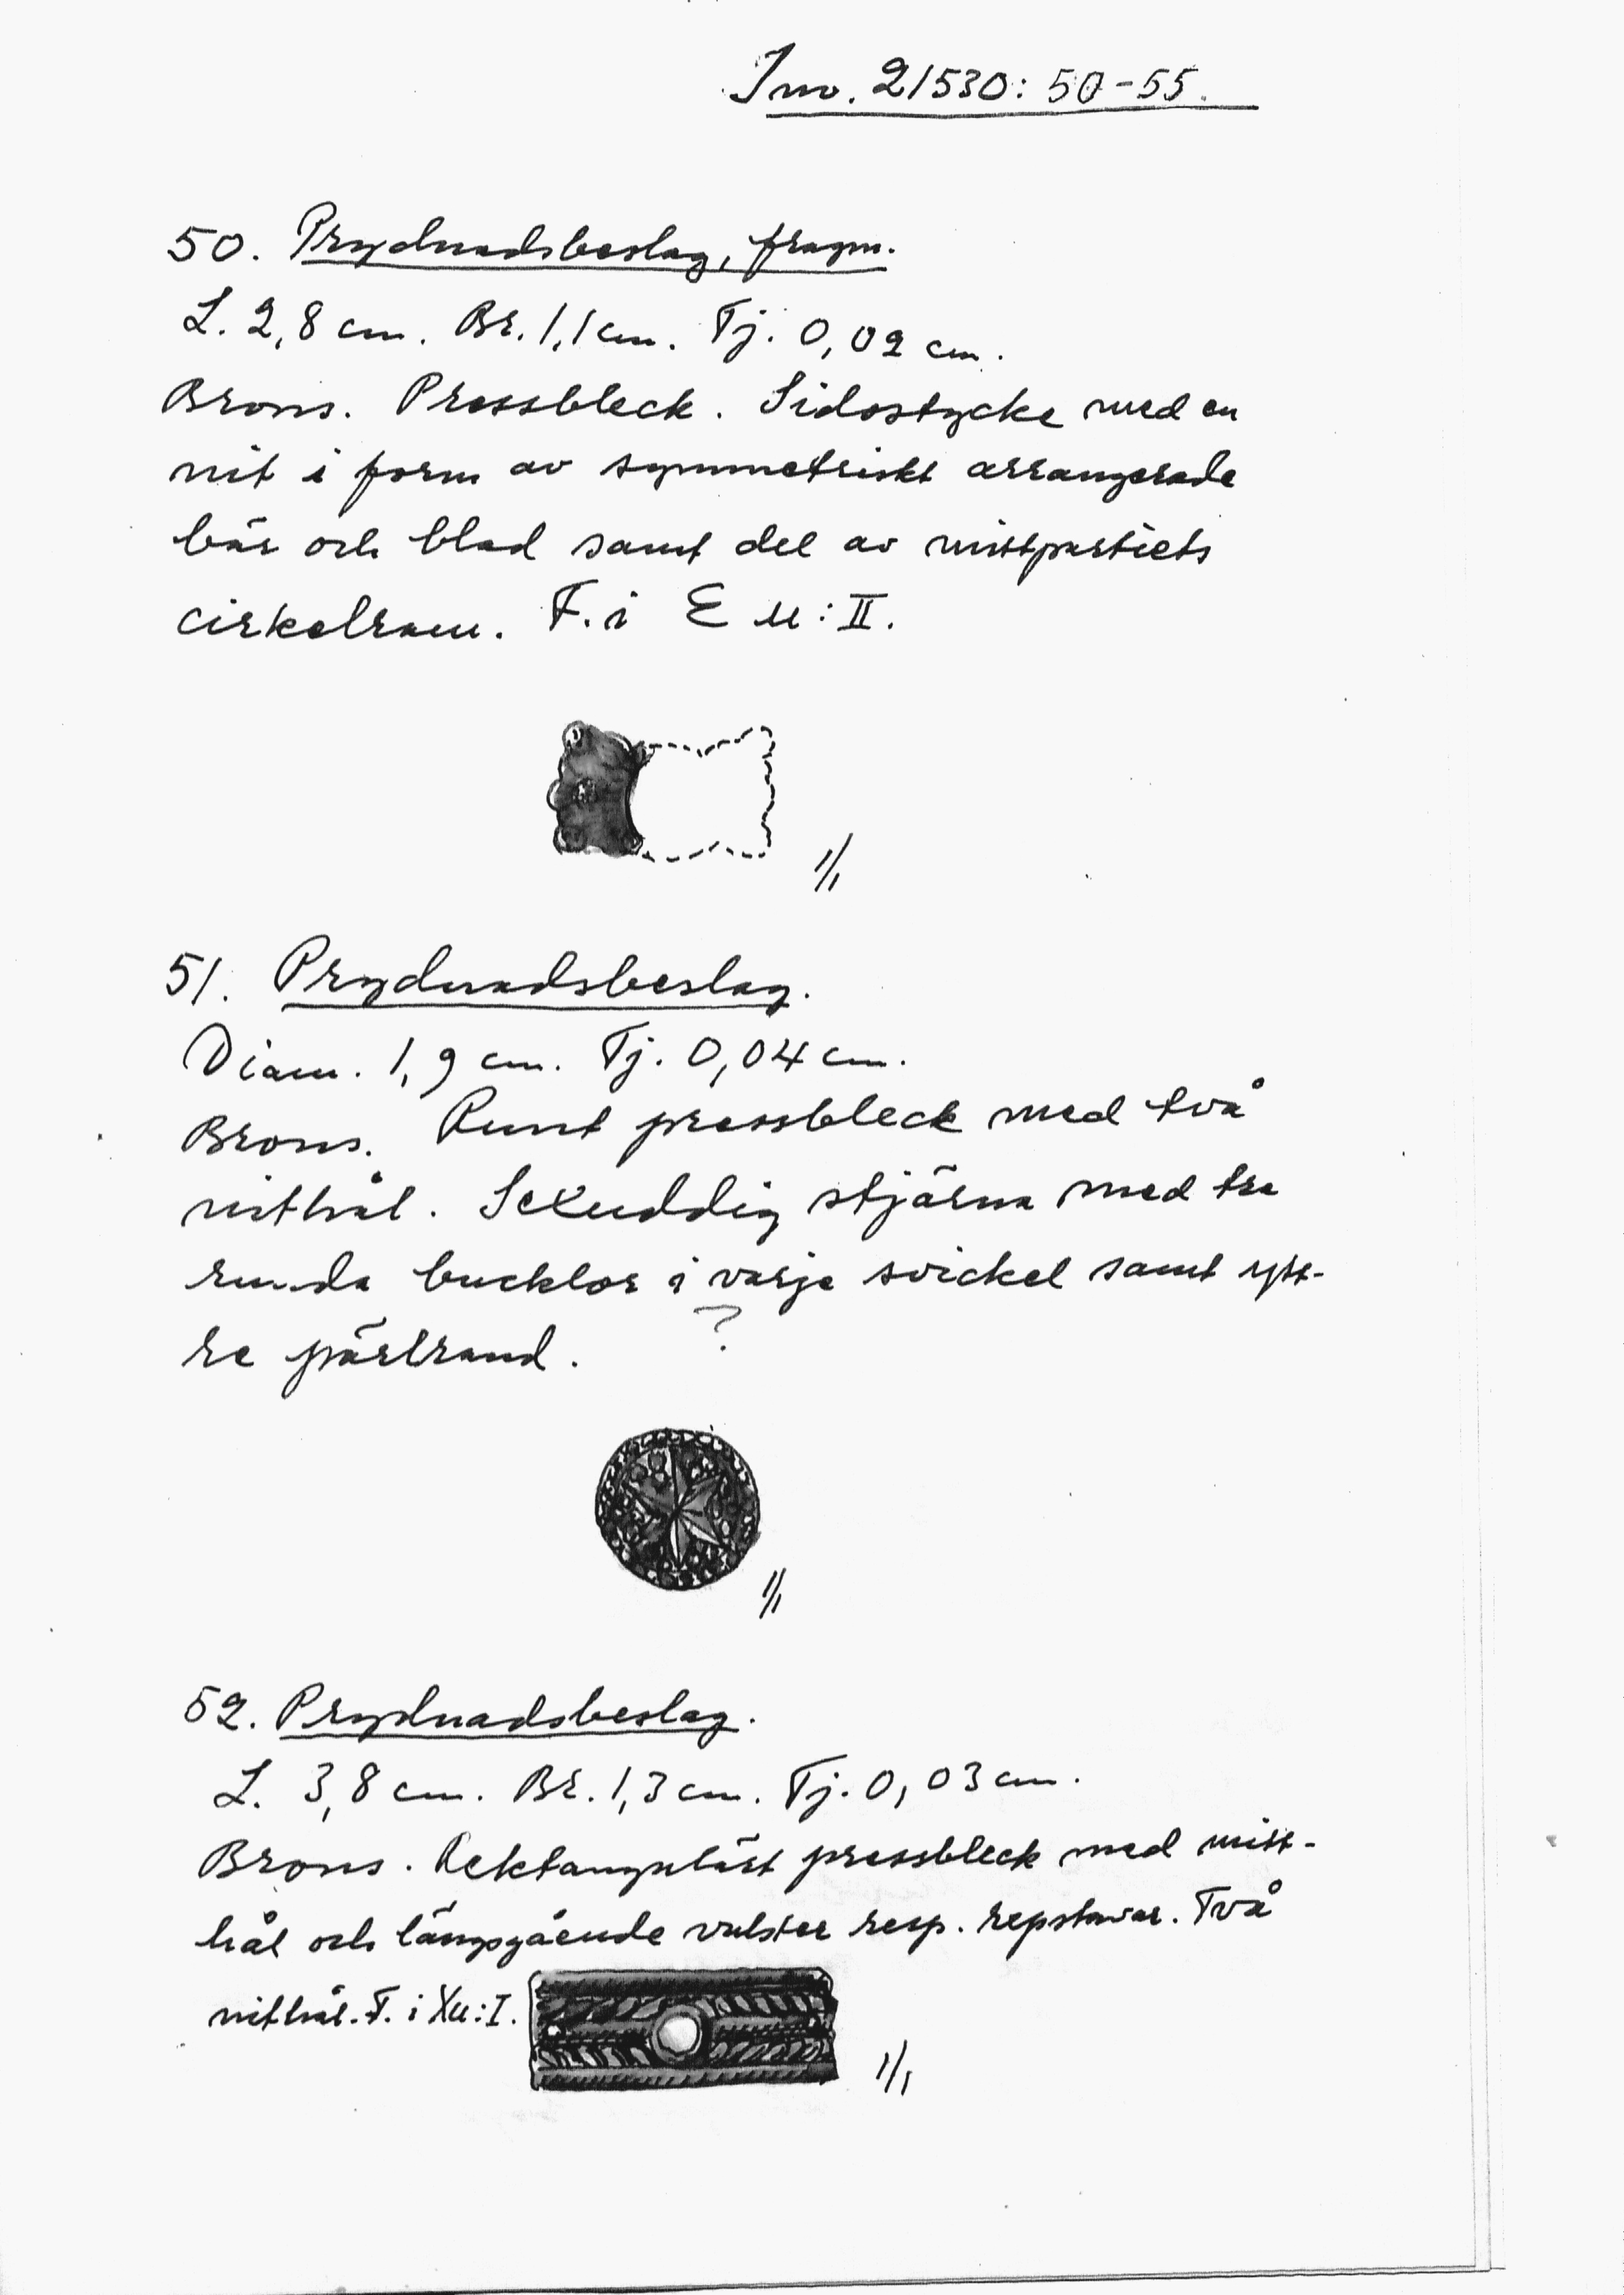 Inv. 21530: 50-55.
50. Prydnadsbeslag, fragm.
L. 2,8 cm. Br. 1,1 cm. Tj. 0,02 cm.
Brons. Pressbleck. Sidostycke med en
nit i form av symmetriskt arrangerade
bär och blad samt del av mittpartiets
cirkelram. F. i E u:II.
1/1
51. Prydnadsbeslag.
Diam. 1,9 cm. Tj. 0,04 cm.
Brons. Runt pressbleck med två
nithål. Sexuddig stjärna med tre
runda bucklor i varje svickel samt ytt-
re pärlrand. ?
1/1
52. Prydnadsbeslag.
L. 3,8 cm. Br. 1,3 cm. Tj. 0,03 cm.
Brons. Rektangulärt pressbleck med mitt-
hål och längsgående vulster resp. repstavar. Två
nithål. F. i Xu:I.
1/1